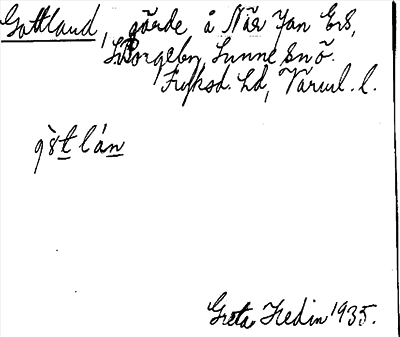 Gottland, gärde å När Jan Ers,
Borgeby, Sunne snö.
Fryksd. hd, Värml. l.
gὸ̀stlán
Greta Hedin 1935.